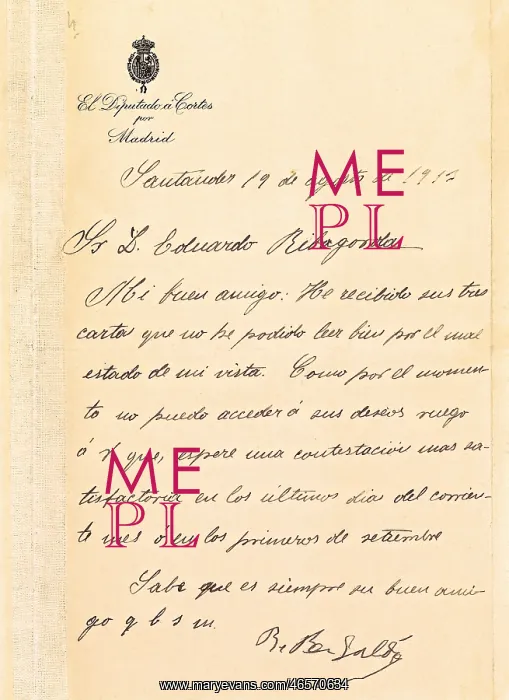 El Diputado á Cortes
por
Madrid
Santander 19 de agosto de 191
Sr D. Eduardo
Mi buen amigo: He recibido sus tres
cartas que no he podido leer bien por el mal
estado de mi vista. Como por el momen-
to no puedo acceder á sus deseos ruego
á V que, espere una contestación mas sa-
tisfactoria en los últimos dias del corrien-
te mes ó en los primeros de setiembre
Sabe que es siempre su buen ami-
go q b s m.
B. Per Galdós
ME
PL
ME
PL
www.maryevans.com/46570634